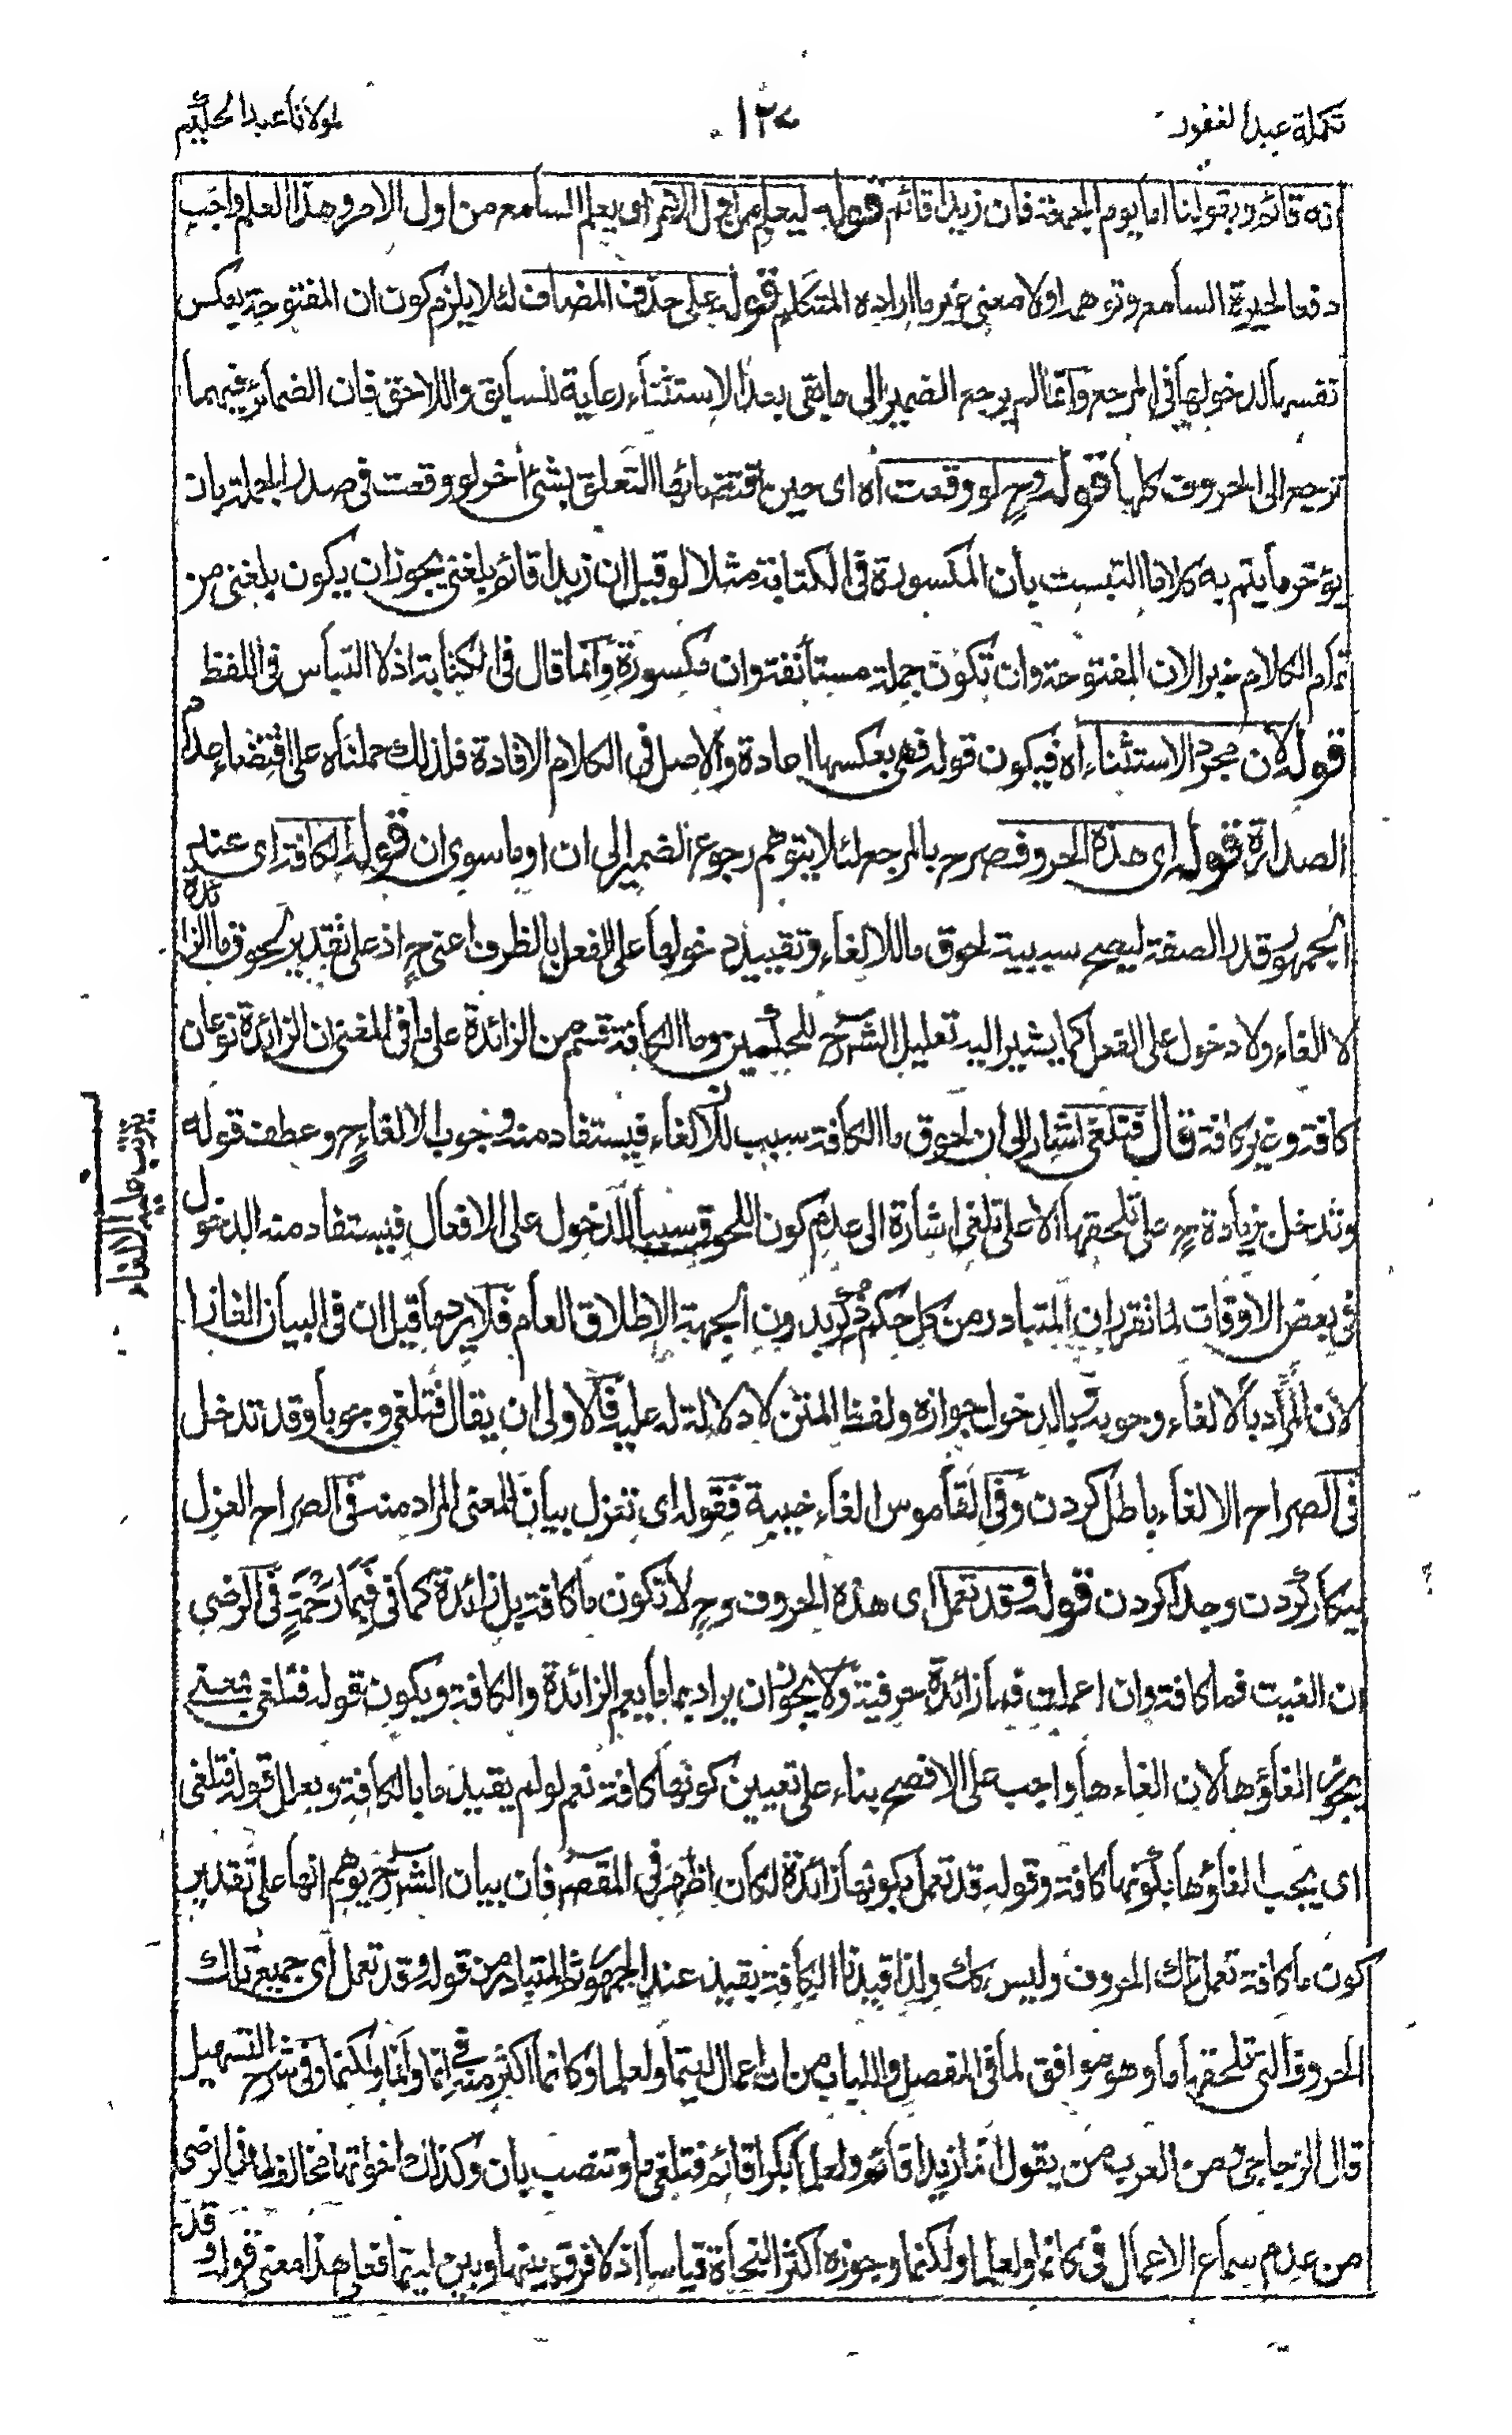 تكملة عبد الغفور
١٢٧
لمولانا عبد الحكيم
انه قائم وبقولنا اما يوم الجمعة فان زيدا قائم قوله ليعلم من اول الامر اى يعلم السامع من اول الامر وهذا العلم واجب
دفعا لحيرة السامع وتوهمه اولا معنى غير ما اراده المتكلم قوله على حذف المضاف لئلا يلزم كون ان المفتوحة بعكس
نفسها لدخولها فى المرجع وانما لم يرجع الضمير الى ما بقى بعد الاستثناء رعاية للسابق واللاحق فان الضمائر فيهما
ترجع الى الحروف كلها قوله وح لو وقعت اه اى حين اقتضائها التعلق بشئ اخر لو وقعت فى صدر الجملة بان
يؤخر ما يتم به كلاما التبست بان المكسورة فى الكتابة مثلا لو قيل ان زيدا قائم بلغنى يجوز ان يكون بلغنى من
تمام الكلام خبرا لان المفتوحة وان تكون جملة مستأنفة وان مكسورة وانما قال فى الكتابة اذ لا التباس فى اللفظ
قوله لان مجرد الاستثناء اه فيكون قوله فهى بعكسها اعادة والاصل فى الكلام الافادة فلذلك حملناه على اقتضاء عدم
الصدارة قوله اى هذه الحروف صرح بالمرجع لئلا يتوهم رجوع الضمير الى ان او ما سوى ان قوله الكافة اى عند
الجمهور قدر الصفة ليصح سببية لحوق ما للالغاء وتقييد دخولها على الفعل بالظرف اعنى ح اذ على تقدير لحوق ما الزائدة
لا الغاء ولا دخول على الفعل كما يشير اليه تعليل الشرح للحكمين وما الكافة قسم من الزائدة على ما فى المغنى ان الزائدة نوعان
كافة وغير كافة قال فتلغى اشار الى ان لحوق ما الكافة سبب للالغاء فيستفاد منه وجوب الالغاء ح وعطف قوله
وتدخل بزيادة ح على تلحقها لا على تلغى اشارة الى عدم كون اللحوق سببا للدخول على الافعال فيستفاد منه الدخول
فى بعض الاوقات لما تقرر ان المتبادر من كل حكم ذكر بدون الجهة الاطلاق العام فلا يرد ما قيل ان فى البيان الغازا
لان المراد بالالغاء وجوبه وبالدخول جوازه ولفظ المتن لا دلالة له عليه فالاولى ان يقال فتلغى وجوبا وقد تدخل
فى الصراح الالغاء باطل كردن وفى القاموس الغاء خيبة فقوله اى تعزل بيان للمعنى المراد منه فى الصراح العزل
بيكار كردن وجدا كردن قوله وقد تعمل اى هذه الحروف وح لا تكون ما كافة بل زائدة كما فى فبما رحمة فى الرضى
ان الغيت فما كافة وان اعملت فما زائدة حرفية ولا يجوز ان يراد بما ما يعم الزائدة والكافة ويكون قوله فتلغى بمعنى
يجوز الغاؤها لان الغاءها واجب على الافصح بناء على تعيين كونها كافة نعم لو لم يقيد ما بالكافة ويعلل قوله فتلغى
اى يجب الغاؤها بكونها كافة وقوله قد تعمل بكونها زائدة لكان اظهر فى المقصود فان بيان الشرح يوهم انها على تقدير
كون ما كافة تعمل تلك الحروف وليس كك ولذا قيدنا الكافة بقيد عند الجمهور والمتبادر من قوله وقد تعمل اى جميع تلك
الحروف التى تلحقها ما وهو موافق لما فى المفصل واللباب من ان اعمال ليتما ولعلما وكانما اكثر منه فى انما وانما ولكنما وفى شرح التسهيل
قال الزجاجى من العرب من يقول انما زيدا قائم ولعلما بكرا قائم فتلغى ما وتنصب بان وكذلك اخواتها مخالف لما فى الرضى
من عدم سماع الاعمال فى كانما ولعلما ولكنما وجوزه اكثر النحاة قياسا اذ لا فرق بينها وبين ليتما فعلى هذا معنى قوله وقد
يترتب عليه الالغاء